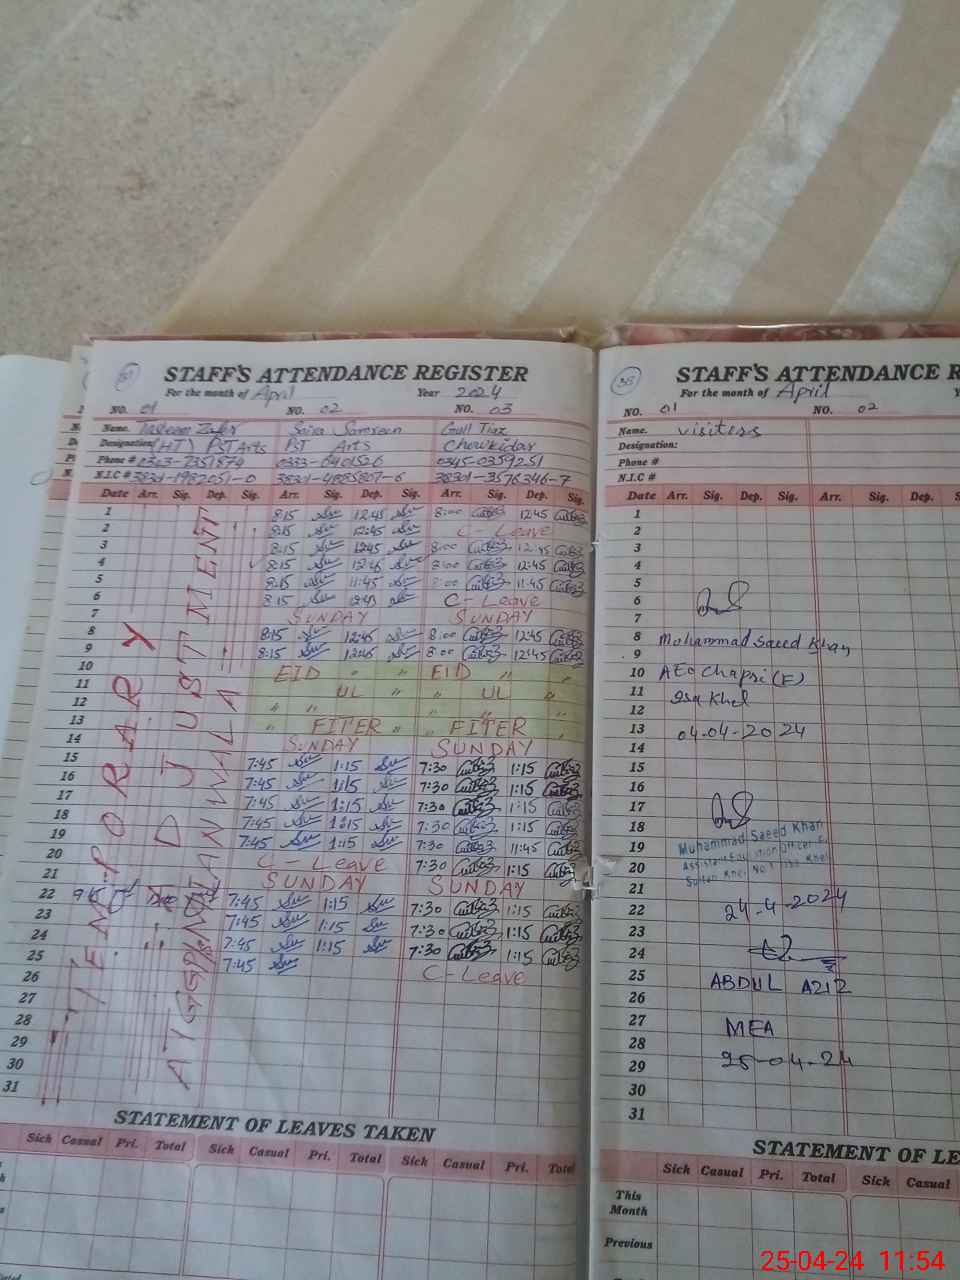 STAFF'S ATTENDANCE REGISTER
For the month of April Year 2024
NO. 01 NO. 02 NO. 03
Name. Tasleem Zafar Saira Samreen Gull Tiaz
Designation (HT) PST Arts PST Arts Chowkidar
Phone # 0343-7351874 0333-6401526 0345-0359251
N.I.C # 38301-1982051-0 38301-4885807-6 38301-3576346-7
Date Arr. Sig. Dep. Sig. Arr. Sig. Dep. Sig. Arr. Sig. Dep. Sig.
TEMPORARY
ADJUSTMENT
1 8:15 12:45 8:00 12:45
2 8:15 12:45 C-Leave
3 8:15 12:45 8:00 12:45
4 8:15 12:45 8:00 12:45
5 8:15 11:45 8:00 11:45
6 8:15 12:45 C-Leave
7 SUNDAY SUNDAY
8 8:15 12:45 8:00 12:45
9 8:15 12:45 8:00 12:45
10 EID " " EID "
11 UL " " UL "
12 " " " "
13 " FITER " FITER "
14 SUNDAY SUNDAY
15 7:45 1:15 7:30 1:15
16 7:45 1:15 7:30 1:15
17 7:45 1:15 7:30 1:15
18 7:45 1:15 7:30 1:15
19 7:45 1:15 7:30 11:45
20 C-Leave 7:30 1:15
21 SUNDAY SUNDAY
22 7:45 1:15 7:30 1:15
23 7:45 1:15 7:30 1:15
24 7:45 1:15 7:30 1:15
25 7:45 C-Leave
26
27
28
29
30
31
STATEMENT OF LEAVES TAKEN
Sick Casual Pri. Total Sick Casual Pri. Total Sick Casual Pri. Total
STAFF'S ATTENDANCE R
For the month of April
NO. 01 NO. 02
Name. visiters
Designation:
Phone #
N.I.C #
Date Arr. Sig. Dep. Sig. Arr. Sig. Dep. S
1
2
3
4
5
6
7
8 Mohammad Saeed Khan
9
10 AEO Chapri (F)
11 Isa Khel
12
13 04-04-2024
14
15
16
17
18 Muhammad Saeed Khan
19 Assistant Education Officer
20
21
22 24-4-2024
23
24
25 ABDUL AZIZ
26
27 MEA
28
29 25-04-24
30
31
STATEMENT OF LE
Sick Casual Pri. Total Sick Casual
This
Month
Previous
25-04-24 11:54